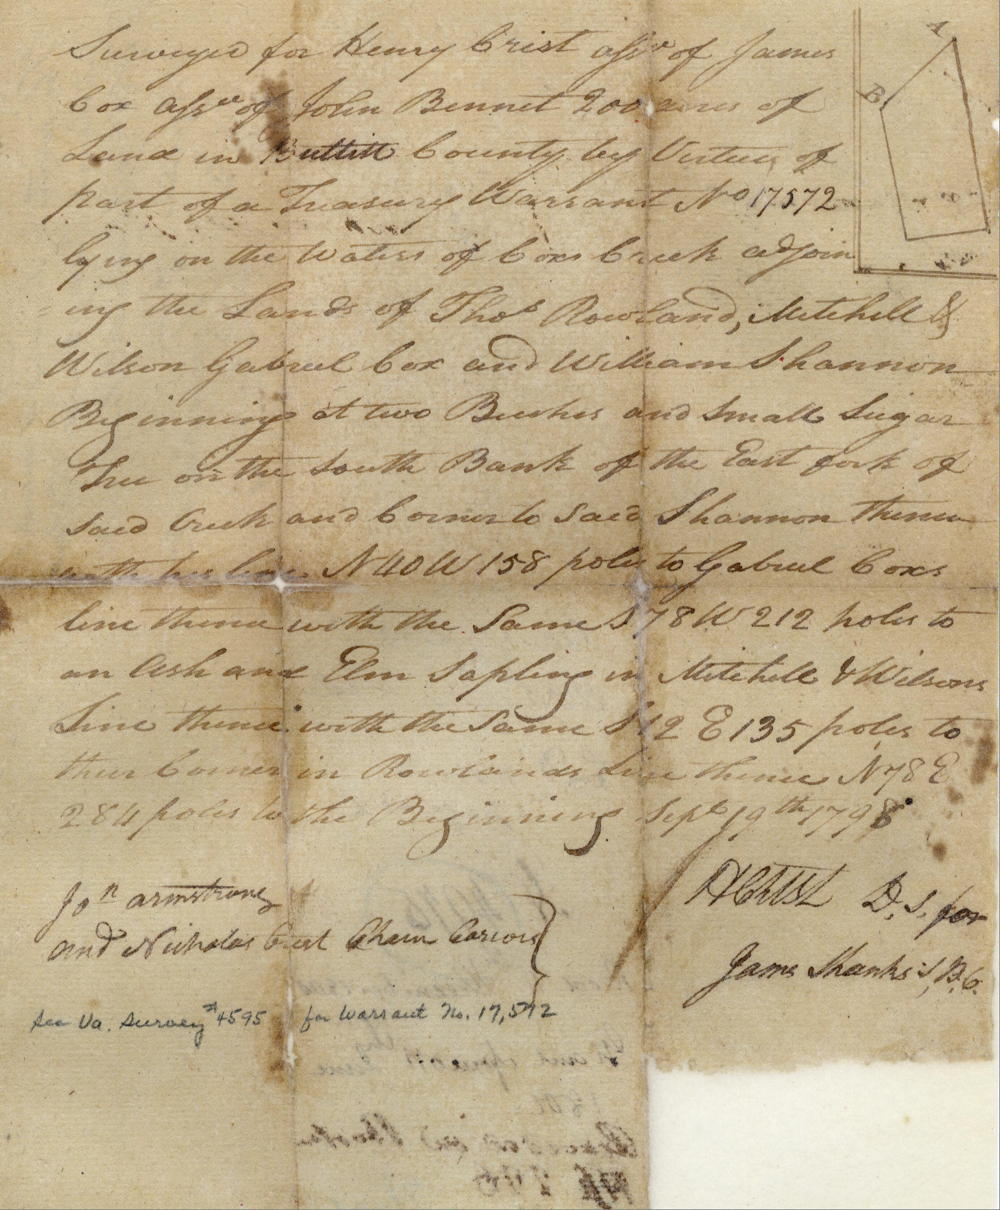 Surveyed for Henry Crist assee of James
Cox assee of John Bennet 200 acres of
Land in Bullitt County by Virtue of
part of a Treasury Warrant No 17572
lying on the Waters of Coxs Creek adjoin
-ing the Lands of Thos Rowland, Mitchell &
Wilson Gabriel Cox and William Shannon
Beginning at two Buckes and Small Sugar
Tree on the South Bank of the East fork of
Said Creek and Corner to Said Shannon thence
with his line N40W 158 poles to Gabriel Coxs
line thence with the Same S78W 212 poles to
an Ash and Elm Sapling in Mitchell & Wilsons
Line thence with the Same S12E 135 poles to
their Corner in Rowlands Line thence N78E
284 poles to the Beginning Sept 19th 1798
A
B
Jon armstrong
and Nicholas Crist Chain Cariors
HCrist D.S. for
James Shanks S,B.C.
See Va. Survey #4595 for Warrant No. 17,572